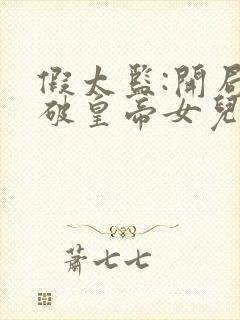 假太監:開局
破皇帝女兒
蕭七七